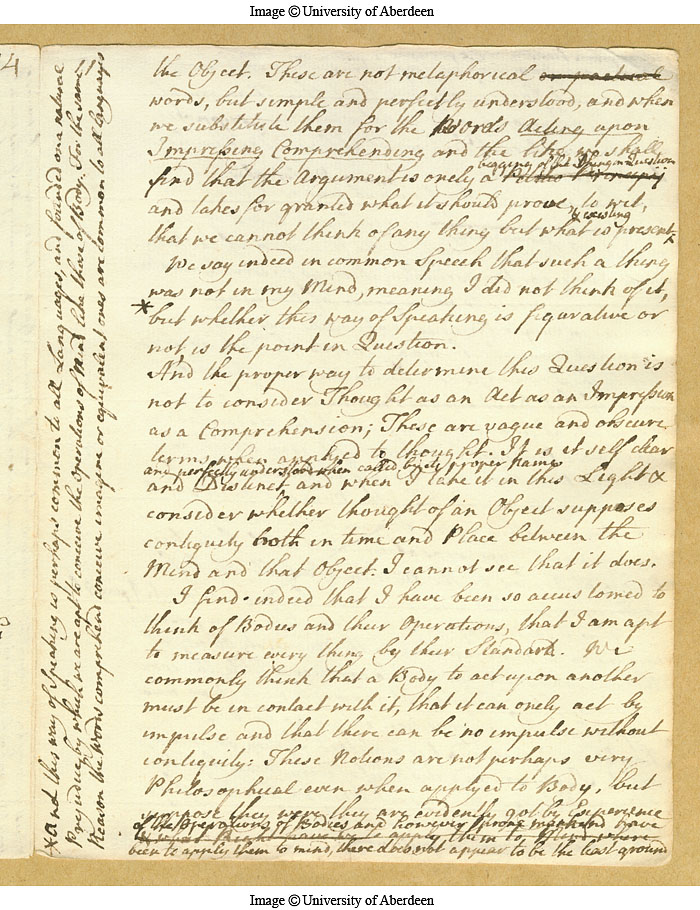 Image © University of Aberdeen
11
the Object. These are not metaphorical or poetical
words, but simple and perfectly understood, and when
we substitute them for the Words Acting upon
Impressing Comprehending and the like, we shall
begging of the Thing in Question
find that the Argument is onely a Petitio Principij
and takes for granted what it should prove, to wit,
& existing
that we cannot think of any thing but what is present x
We say indeed in common Speech that such a thing
was not in my Mind, meaning I did not think of it,
* but whether this way of Speaking is figurative or
not is the point in Question.
And the proper way to determine this Question is
not to consider Thought as an Act as an Impression
as a Comprehension; These are vague and obscure
terms when applyed to thought. It is it self clear
and perfectly understood when called by its proper Name
and Distinct and when I take it in this Light &
consider whether thought of an Object supposes
contiguity both in time and Place between the
Mind and that Object. I cannot see that it does.
I find indeed that I have been so accustomed to
think of Bodies and their Operations, that I am apt
to measure every thing by their Standart. We
commonly think that a Body to act upon another
must be in contact with it, that it can onely act by
impulse and that there can be no impulse without
contiguity: These Notions are not perhaps very
Philosophical even when applyed to Body, but
suppose they were they are evidently got by Experience
of the Operations of Bodies and however prone mankind have
to apply them to Mind, where
been to apply them to mind, there does not appear to be the least ground
x and this way of Speaking is perhaps common to all Languages, and founded on a natural
Prejudice by which we are apt to conceive the Operations of Mind like those of Body. For the same
Reason the words comprehend conceive imagine or equivalent ones are common to all languages
Image © University of Aberdeen